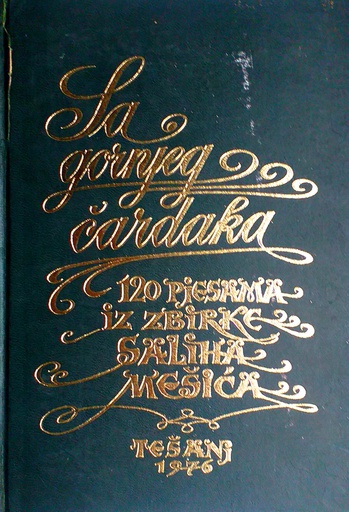 Sa
gornjeg
čardaka
120 PJESAMA
IZ ZBIRKE
SALIHA
MEŠIĆA
TEŠANJ
1976